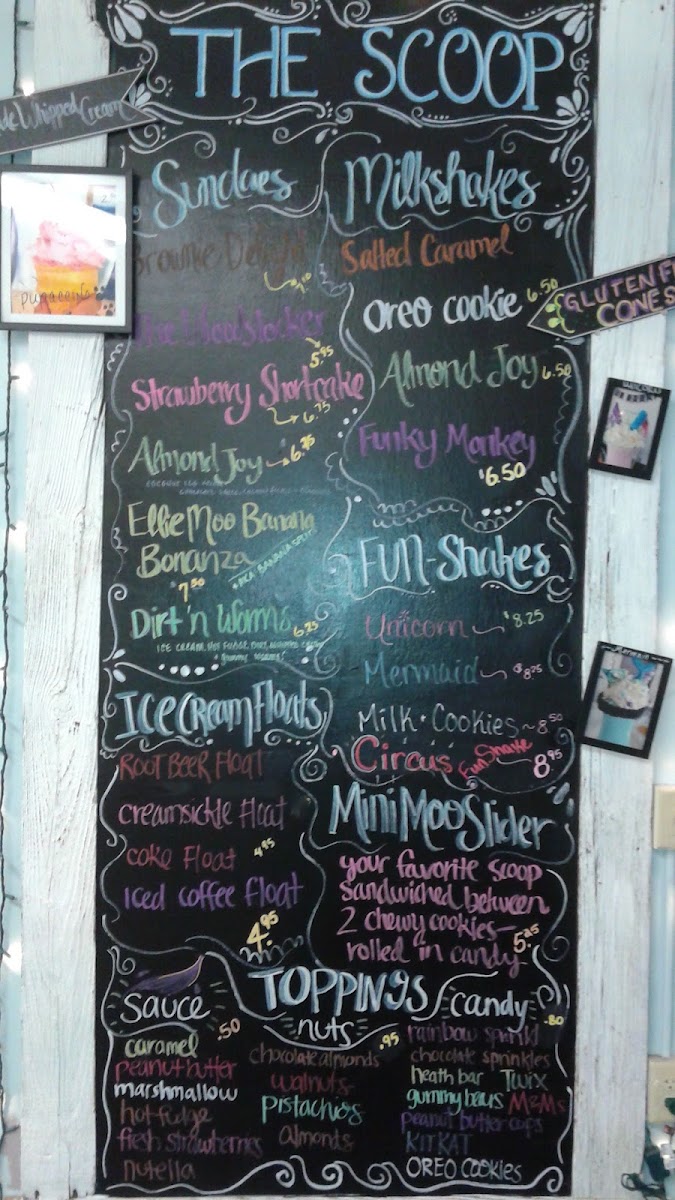 THE SCOOP
Whipped Cream
Sundaes
Brownie Delight
The Woodstocker
5.95
Strawberry Shortcake
6.75
Almond Joy
6.75
Ellie Moo Banana
Bonanza
7.50
Dirt 'n Worms
6.25
ICE CREAM, HOT FUDGE, DIRT, WHIPPED CREAM
+ Gummy Worms!
Ice Cream Floats
ROOT BEER FLOAT
creamsickle float
coke Float
4.95
Iced coffee float
4.95
Milkshakes
Salted Caramel
Oreo cookie
6.50
GLUTEN
CONES
Almond Joy
6.50
Funky Monkey
$6.50
FUN-Shakes
Unicorn
$8.25
Mermaid
Milk + Cookies ~ 8.50
Circus Fun Shake
8.95
Mini Moo Slider
your favorite scoop
sandwiched between
2 chewy cookies—
rolled in candy
5.25
TOPPINGS
sauce
.50
caramel
peanut butter
marshmallow
hot fudge
fresh strawberries
nutella
nuts
.95
chocolate almonds
walnuts
Pistachios
almonds
candy
.80
rainbow sprinkl
chocolate sprinkles
heath bar Twix
gummy bears M&Ms
peanut butter cups
KITKAT
OREO COOKIES